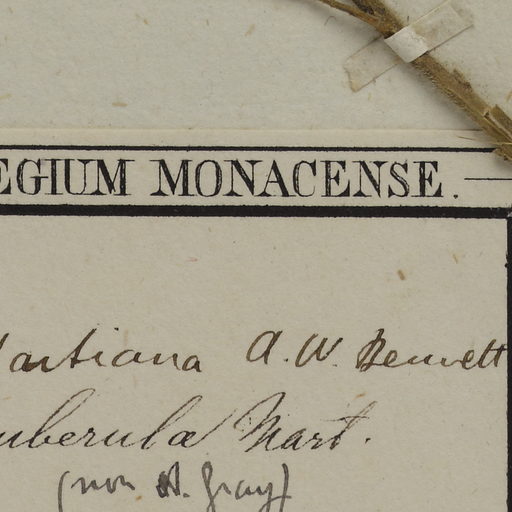 EGIUM MONACENSE.
artiana A. W. Bennett
uberula Mart.
(non A. Gray)